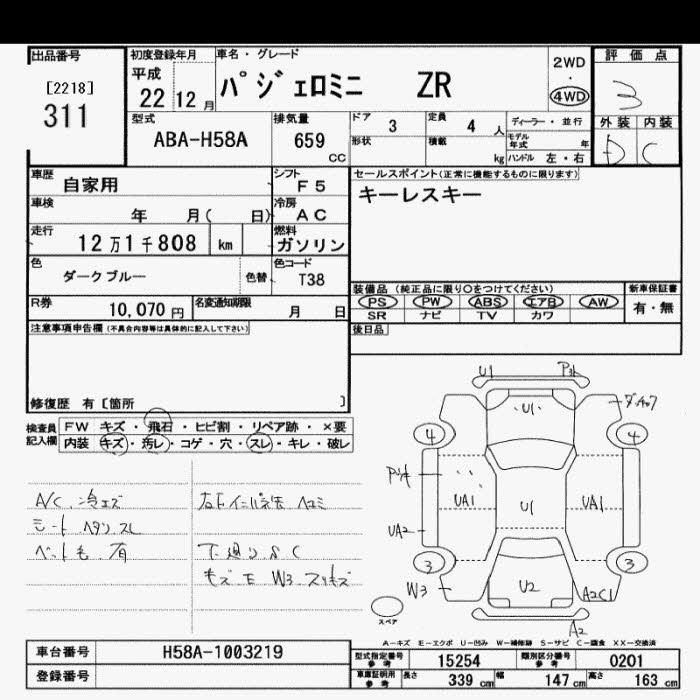 出品番号
[2218]
311
初度登録年月
平成
22年 12月
車名・グレード
パジェロミニ ZR
2WD
・
4WD
評価点
3
外装 内装
D C
型式
ABA-H58A
排気量
659
CC
ドア 3
形状
定員 4 人
積載 kg
ディーラー・並行
モデル年式 年
ハンドル 左・右
車歴 自家用
シフト F5
車検 年 月( 日)
冷房 AC
走行 12万1千808 km
燃料 ガソリン
色 ダークブルー
色替
色コード T38
R券 10,070円
名変通知期限 月 日
セールスポイント(正常に機能するものに限ります)
キーレスキー
装備品 (純正品に限り○をつけてください)
PS PW ABS エアB AW
SR ナビ TV カワ
新車保証書
有・無
後日品
注意事項申告欄(不具合内容等は具体的に記入して下さい)
修復歴 有 [箇所 ]
検査員記入欄
FW キズ・飛石・ヒビ割・リペア跡・×要
内装 キズ・汚レ・コゲ・穴・スレ・キレ・破レ
A/C 冷エズ
シート ヘタリ スレ
ペット毛 有
ヘコミ
下廻りSC
キズ E W3 スリキズ
U1
U1
4
4
UA1
U1
UA1
UA2
3
3
W3
U2
A2C1
A2
スペア
A-キズ E-エクボ U-凹み W-補修跡 S-サビ C-腐食 XX-交換済
車台番号 H58A-1003219
登録番号
型式指定番号 参考 15254
類別区分番号 参考 0201
車庫証明用 参考 長さ 339cm 幅 147cm 高さ 163cm